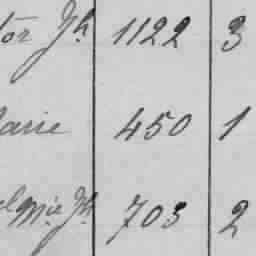 tor Jh 1122 3
arie 450 1
el Mie Jh 703 2